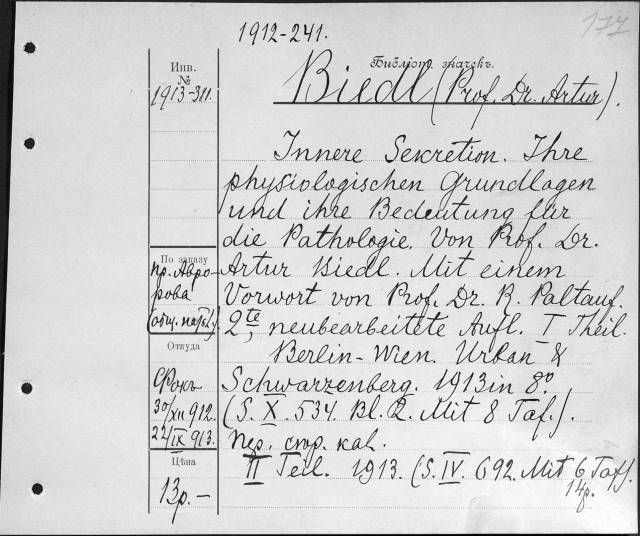 177
1912-241.
Библіот. значекъ.
Инв.
№
1913-311.
Biedl (Prof. Dr. Artur).
Innere Sekretion. Ihre
physiologischen Grundlagen
und ihre Bedeutung für
die Pathologie. Von Prof. Dr.
Artur Biedl. Mit einem
Vorwort von Prof. Dr. R. Paltauf.
2te, neubearbeitete Aufl. I Theil.
Berlin-Wien. Urban &
Schwarzenberg. 1913 in 8º
(S. X. 534. Bl. 2. Mit 8 Taf.).
пер. стор. кал.
II Teil. 1913. (S. IV. 692. Mit 6 Taf.).
14р.
По заказу
пр. Авро-
рова
Откуда
Фокъ
30/XII 912.
22/IX 913.
Цѣна
13р.—